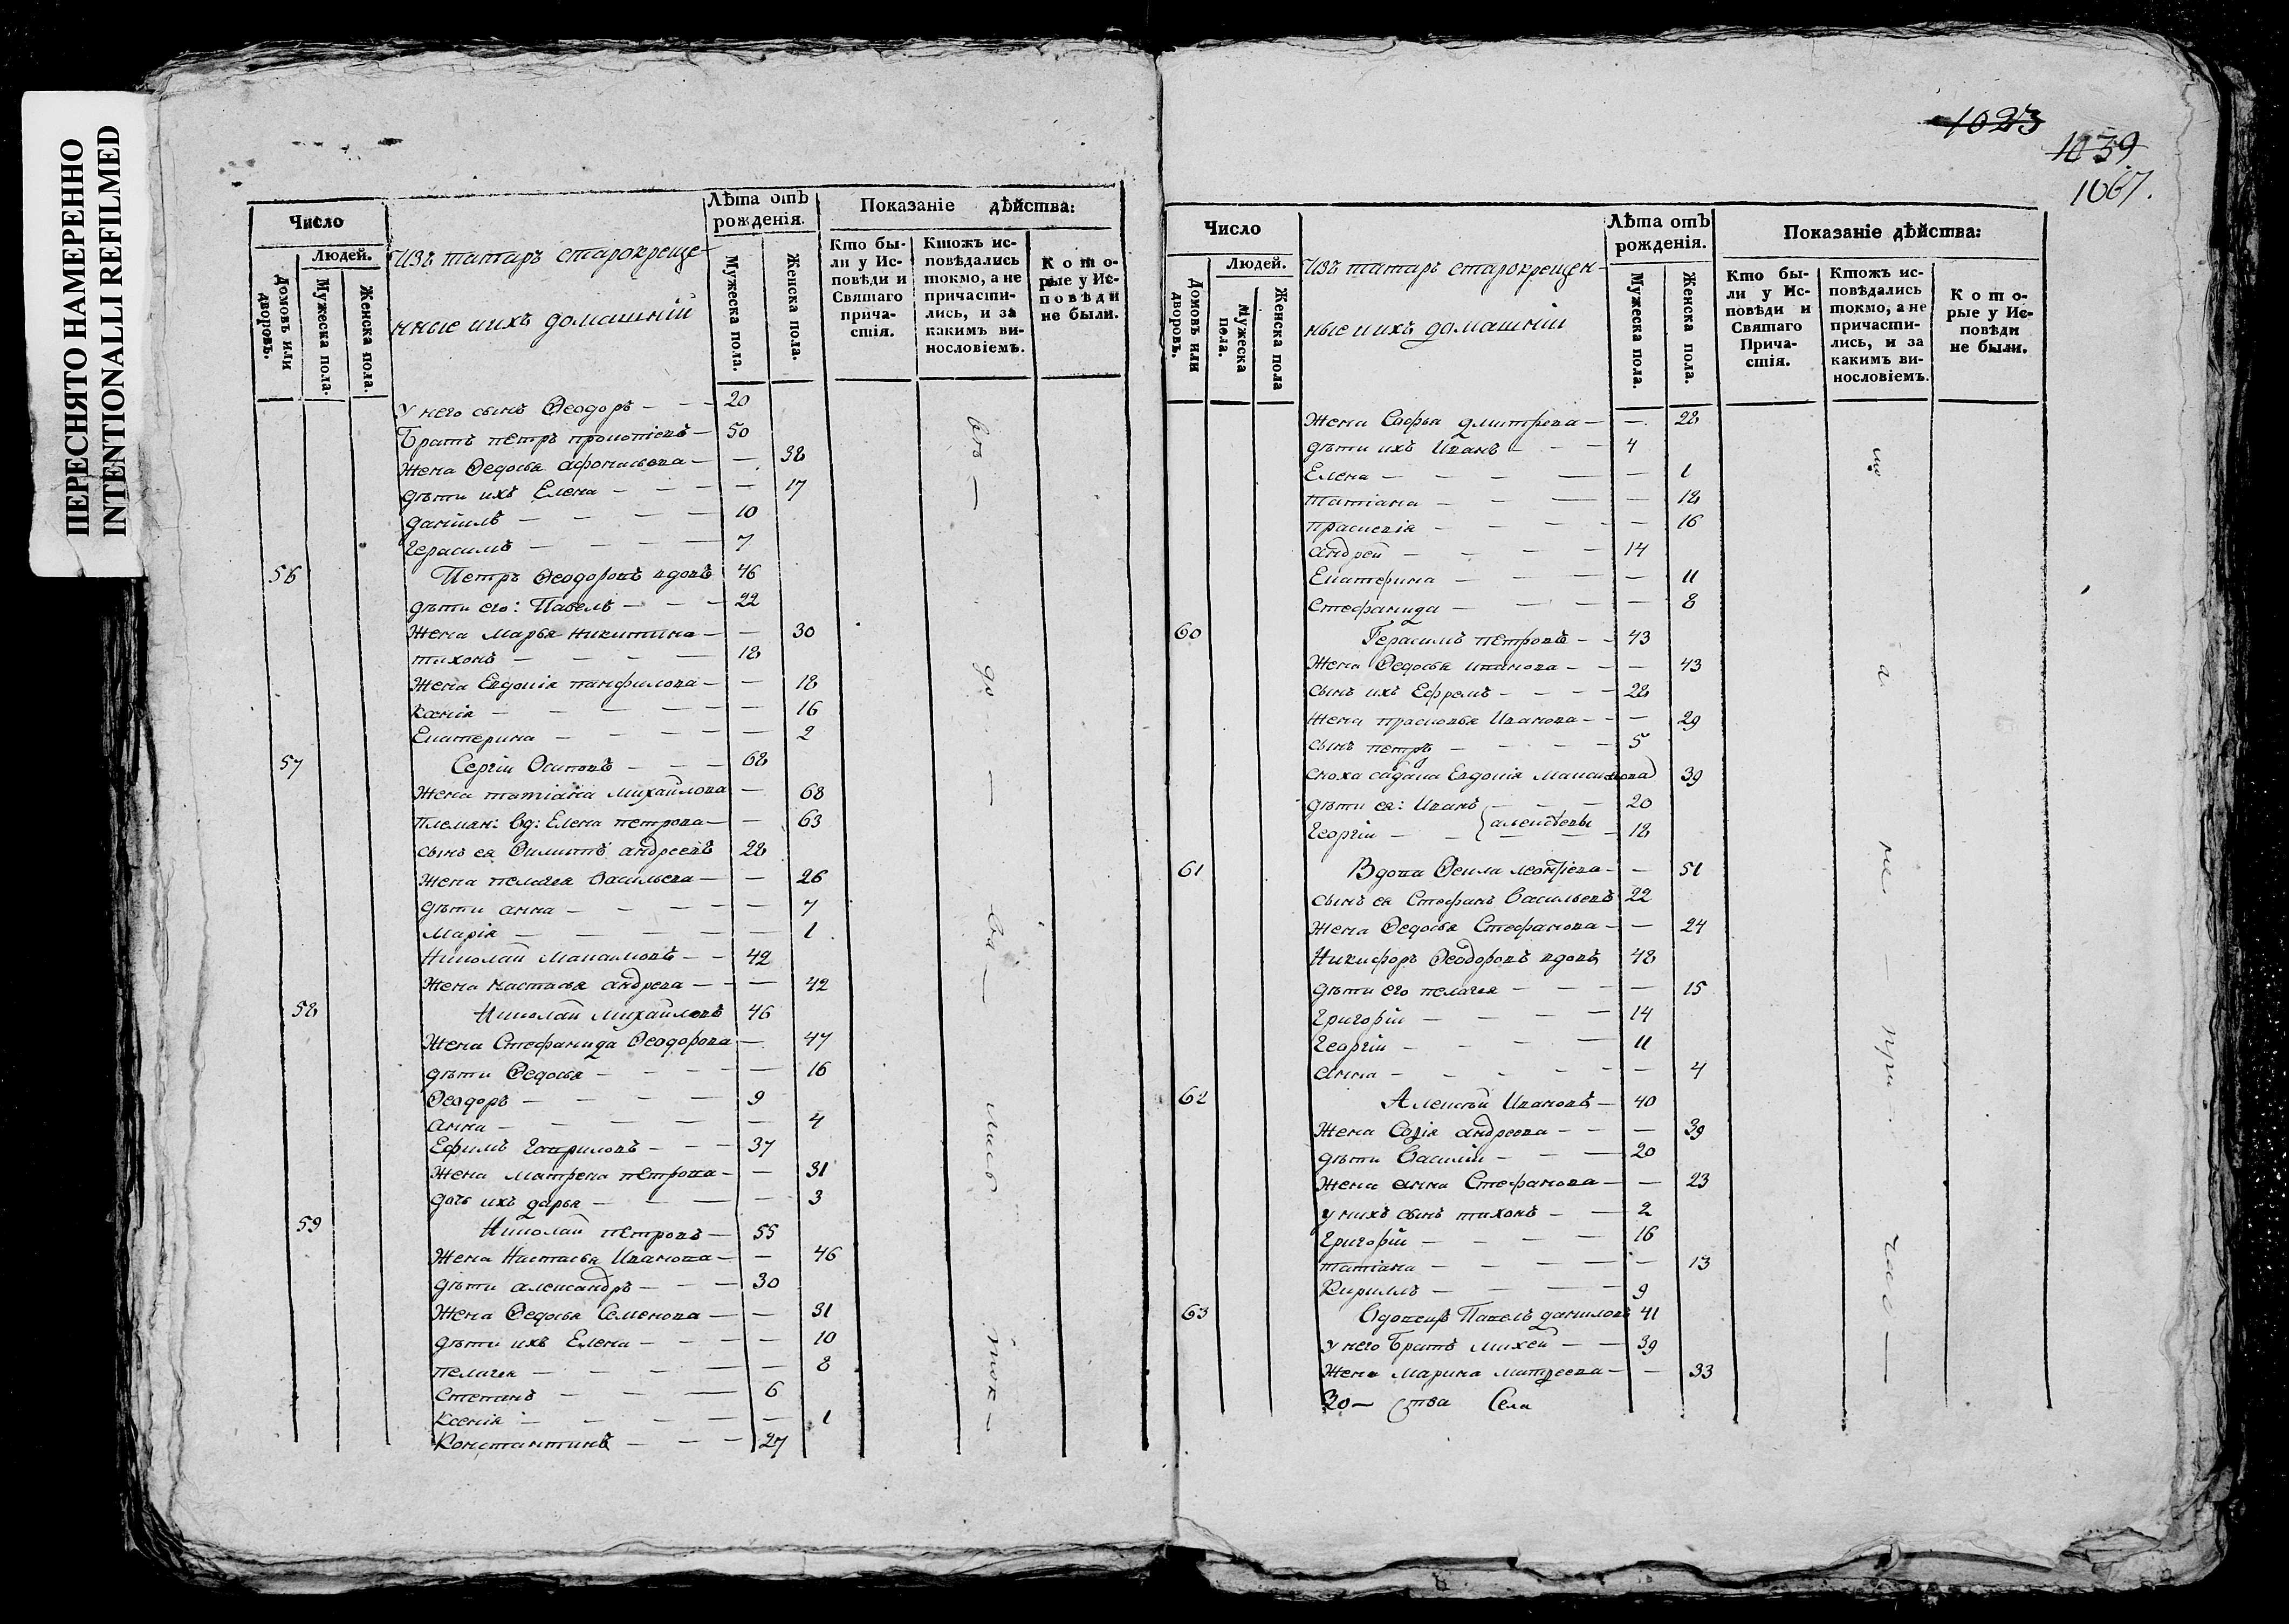 ПЕРЕСНЯТО НАМЕРЕННО
INTENTIONALLI REFILMED
1023
1039
1067.
Число
Людей.
Домовъ или дворовъ.
Мужеска пола.
Женска пола.
Изъ татаръ старокреще-
нные и ихъ домашнiй
Лѣта отъ рожденiя.
Мужеска пола.
Женска пола.
Показанiе дѣйства:
Кто бы-
ли у Ис-
повѣди и
Святаго
прича-
стiя.
Ктожъ ис-
повѣдались
токмо, а не
причасти-
лись, и за
какимъ ви-
нословiемъ.
Кото-
рые у Ис-
повѣди
не были.
У него сынъ Ѳеодоръ — 20
Братъ петръ прокопiевъ — 50
Жена Ѳедосья афонасьева — 38
дѣти ихъ Елена — 17
данiилъ — 10
Герасимъ — 7
56 Петръ Ѳеодоровъ вдовъ 46
дѣти его: Павелъ — 22
Жена Марья никитина — 30
тихонъ — 18
Жена Евдокiя панфилова — 18
Ксенiя — 16
Екатерина — 2
57 Сергiй Осиповъ — 68
Жена татiана Михайлова — 68
племян: вд: Елена петрова — 63
сынъ ея Филиппъ андреевъ 28
Жена пелагея Васильева — 26
дѣти анна — 7
Марiя — 1
Николай Максимовъ — 42
Жена настасья андреева — 42
58 Николай Михайловъ 46
Жена Стефанида Ѳеодорова — 47
дѣти Ѳедосья — 16
Ѳеодоръ — 9
анна — 4
Ефимъ Гавриловъ — 37
Жена матрена петрова — 31
дочь ихъ дарья — 3
59 Николай петровъ — 55
Жена Настасья Иванова — 46
дѣти александръ — 30
Жена Ѳедосья Семенова — 31
дѣти ихъ Елена — 10
пелагея — 8
Степанъ — 6
Ксенiя — 1
Константинъ — 27
Число
Людей.
Домовъ или дворовъ.
Мужеска пола.
Женска пола
Изъ татаръ старокрещен-
ные и ихъ домашнiй
Лѣта отъ рожденiя.
Мужеска пола.
Женска пола.
Показанiе дѣйства:
Кто бы-
ли у Ис-
повѣди и
Святаго
Прича-
стiя.
Ктожъ ис-
повѣдались
токмо, а не
причасти-
лись, и за
какимъ ви-
нословiемъ.
Кото-
рые у Ис-
повѣди
не были.
Жена Софья дмитрева — 28
дѣти ихъ Иванъ — 4
Елена — 1
татiана — 18
прасковiя — 16
андрей — 14
Екатерина — 11
Стефанида — 8
60 Герасимъ петровъ — 43
Жена Ѳедосья иванова — 43
сынъ ихъ Ефремъ — 28
Жена прасковья Иванова — 29
сынъ петръ — 5
сноха Евдокiя Максимова 39
дѣти ея: Иванъ — 20
алексѣевы
Георгiй — 18
61 Вдова Ѳекла — 51
сынъ ея Стефанъ Васильевъ 22
Жена Ѳедосья Стефанова — 24
Никифоръ Ѳеодоровъ вдовъ 48
дѣти его пелагея — 15
Григорiй — 14
Георгiй — 11
анна — 4
62 Алексѣй Ивановъ — 40
Жена андреева — 39
дѣти Василiй — 20
Жена анна Стефанова — 23
у нихъ сынъ тихонъ — 2
Григорiй — 16
татiана — 13
Кириллъ — 9
63 Вдовецъ Павелъ даниловъ 41
у него Братъ михей — 39
Жена Марина матвеева — 33
Зо— ства Села